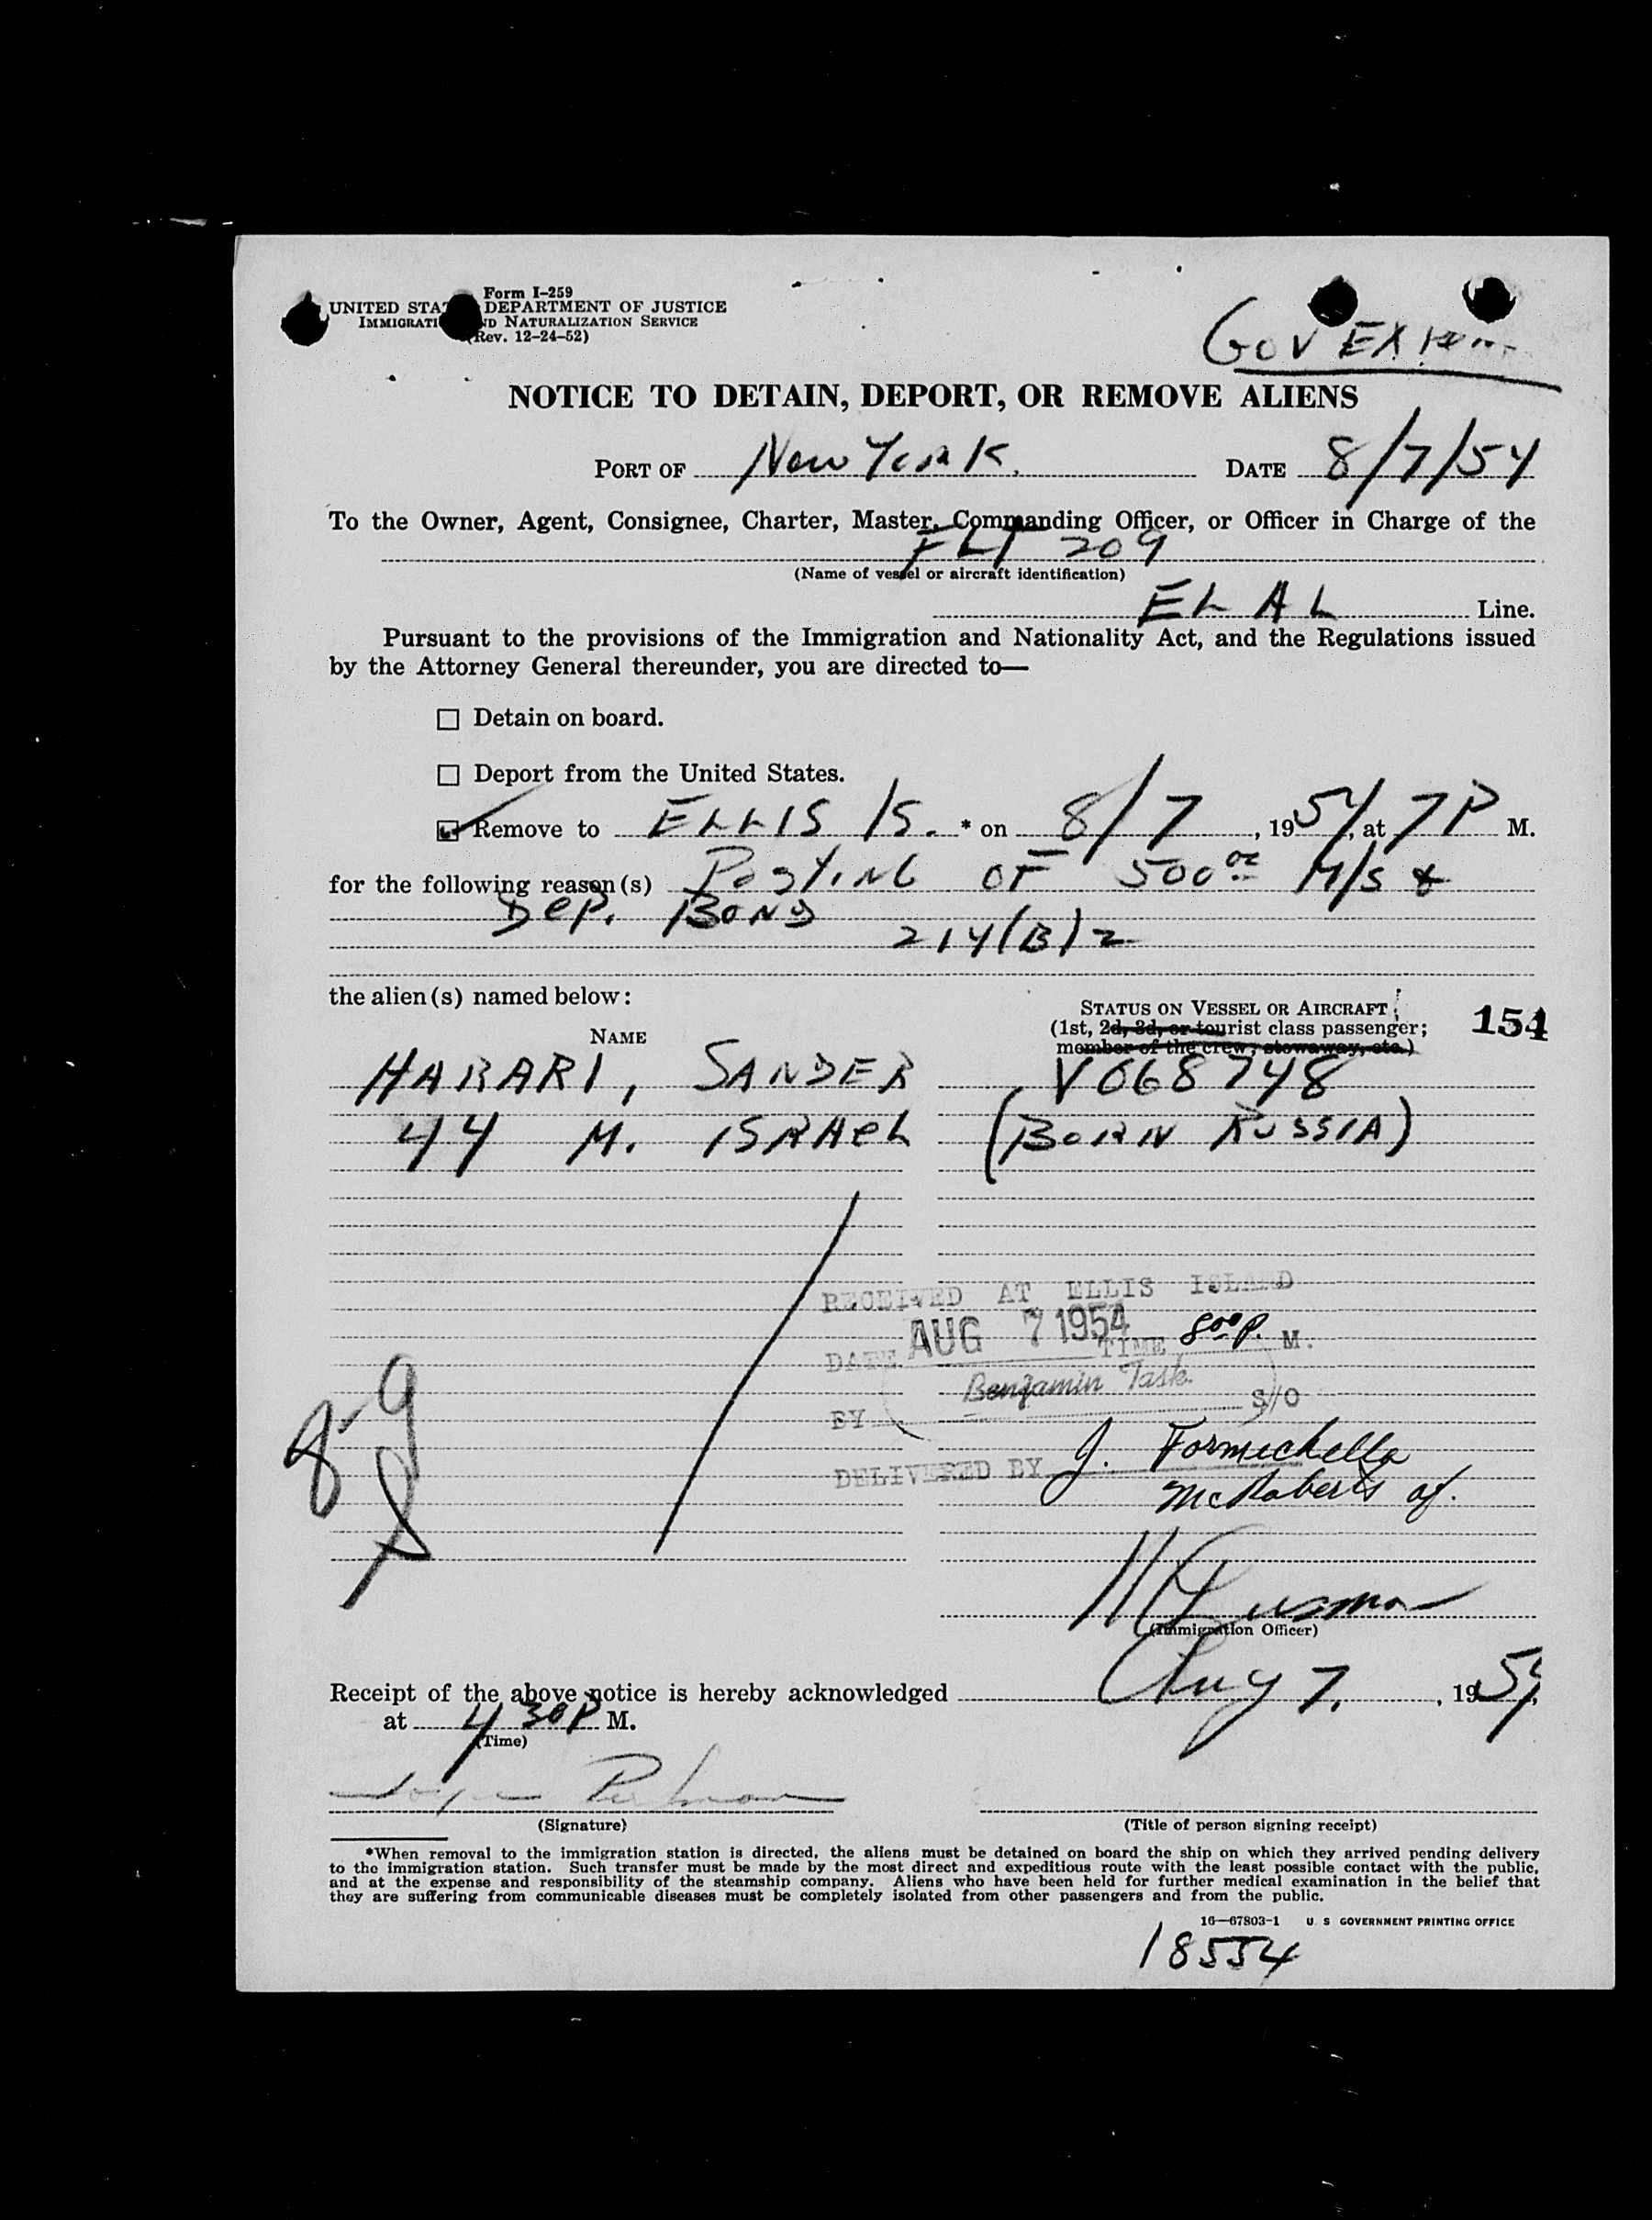 Form I-259
UNITED STA DEPARTMENT OF JUSTICE
IMMIGRATI ND NATURALIZATION SERVICE
(Rev. 12-24-52)
GOV EX
NOTICE TO DETAIN, DEPORT, OR REMOVE ALIENS
PORT OF New York. DATE 8/7/54
To the Owner, Agent, Consignee, Charter, Master, Commanding Officer, or Officer in Charge of the
FLT 209
(Name of vessel or aircraft identification)
EL AL Line.
Pursuant to the provisions of the Immigration and Nationality Act, and the Regulations issued
by the Attorney General thereunder, you are directed to—
☐ Detain on board.
☐ Deport from the United States.
☑ Remove to ELLIS IS. * on 8/7, 1954, at 7 P M.
for the following reason(s) Posting OF 500 00 M/S &
Dep. Bond
214(B)2
the alien(s) named below:
STATUS ON VESSEL OR AIRCRAFT
(1st, 2d, 3d, or tourist class passenger;
member of the crew; stowaway, etc.)
154
NAME
HARARI, SANDER V068748
44 M. ISRAEL (BORN RUSSIA)
RECEIVED AT ELLIS ISLAND
DATE AUG 7 1954 TIME 8 00 P. M.
BY Benjamin Task S/O
DELIVERED BY J. Formichella
McRoberts
8-9
(Immigration Officer)
Receipt of the above notice is hereby acknowledged Aug 7, 1954,
at 4 30 P M.
(Time)
(Signature) (Title of person signing receipt)
*When removal to the immigration station is directed, the aliens must be detained on board the ship on which they arrived pending delivery
to the immigration station. Such transfer must be made by the most direct and expeditious route with the least possible contact with the public,
and at the expense and responsibility of the steamship company. Aliens who have been held for further medical examination in the belief that
they are suffering from communicable diseases must be completely isolated from other passengers and from the public.
16—67803-1 U S GOVERNMENT PRINTING OFFICE
18554